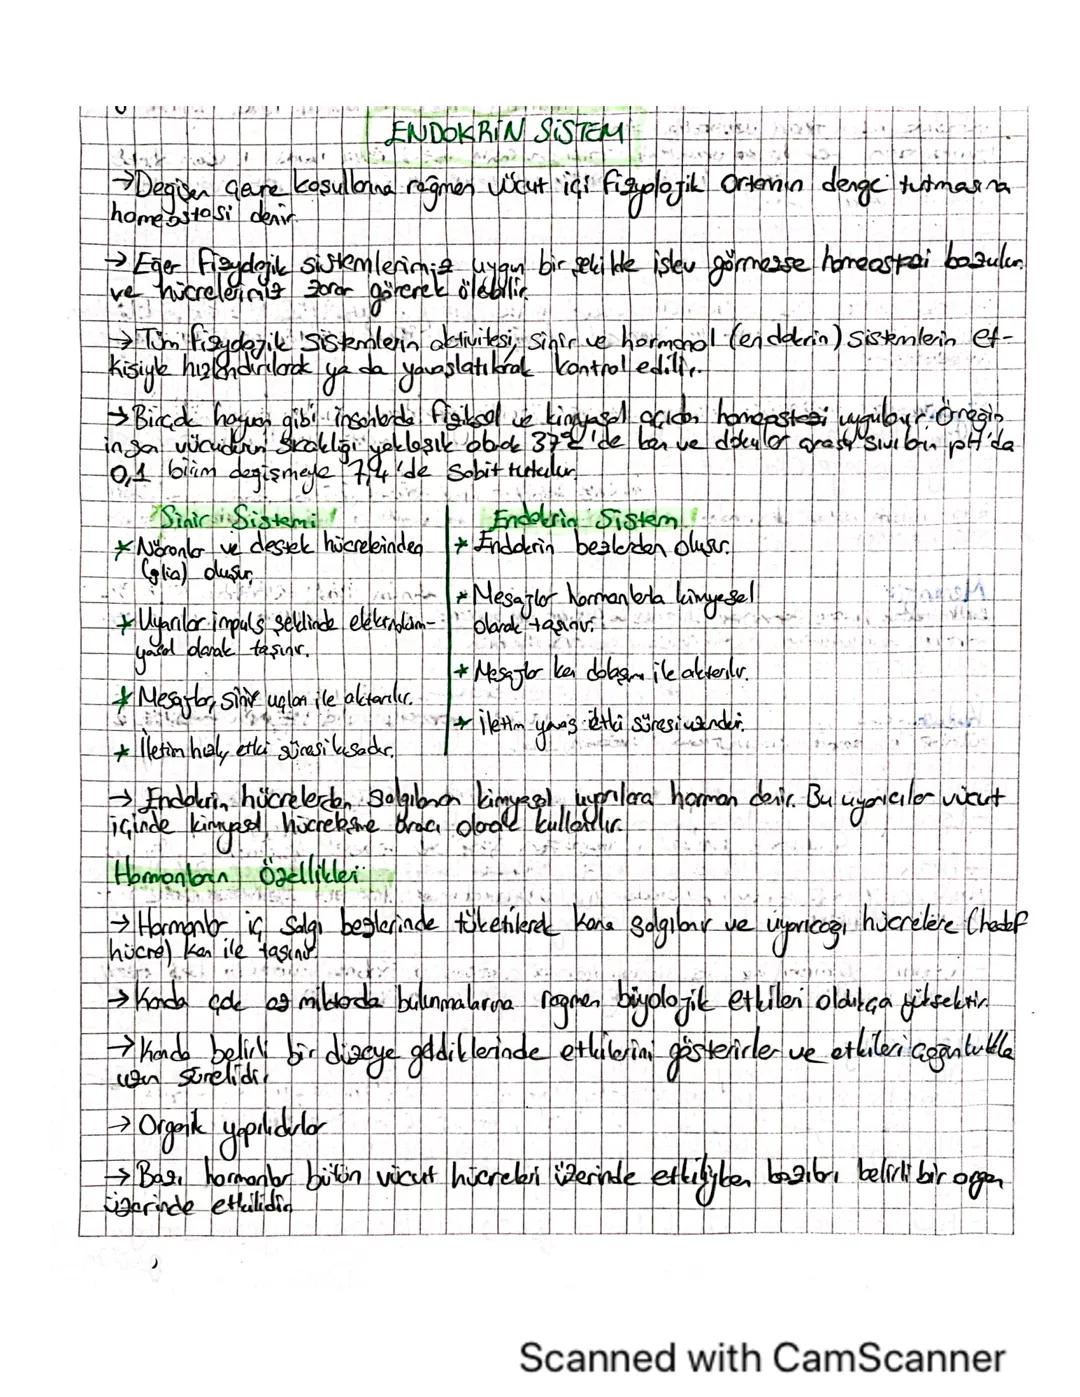 ENDOKRİN SİSTEM
→Değişen çevre koşullarına rağmen vücut içi fizyolojik ortamın denge tutmasına
homeostasi denir.
→ Eğer fizyolojik sistemlerimiz uygun bir şekilde işlev görmezse homeostazi bozulur
ve hücrelerimiz zarar görerek ölebilir.
→ Tüm fizyolojik sistemlerin aktivitesi, sinir ve hormonal (endokrin) sistemlerin et-
kisiyle hızlandırılarak ya da yavaşlatılarak kontrol edilir.
→Birçok hayvan gibi insanlarda fiziksel ve kimyasal açıdan homeostazi uygulanır. Örneğin,
insan vücudunun sıcaklığı yaklaşık olarak 37°C'de kan ve dokular arası sıvıların pH'da
0,1 birim değişmeyle 7,4'de sabit tutulur.
Sinir Sistemi
* Nöronlar ve destek hücrelerinden
(glia) oluşur.
* Uyarılar impuls şeklinde elektrokim-
yasal olarak taşınır.
* Mesajlar, sinir uçları ile aktarılır.
* İletim hızlı, etki süresi kısadır.
Endokrin Sistem
* Endokrin bezlerden oluşur.
* Mesajlar hormonlarla kimyasal
olarak taşınır.
* Mesajlar kan dolaşımı ile aktarılır.
* İletim yavaş etki süresi uzundur.
→ Endokrin hücrelerden salgılanan kimyasal uyarılara hormon denir. Bu uyarıcılar vücut
içinde kimyasal hücreleşme aracı olarak kullanılır.
Hormonların Özellikleri
→ Hormonlar iç salgı bezlerinde tüketilerek kana salgılanır ve uyaracağı hücrelere (hedef
hücre) kan ile taşınır.
→ Kanda çok az miktarda bulunmalarına rağmen biyolojik etkileri oldukça yüksektir.
→ Kanda belirli bir düzeye geldiklerinde etkilerini gösterirler ve etkileri çoğunlukla
uzun sürelidir.
→ Organik yapılıdırlar
→ Bazı hormonlar bütün vücut hücreleri üzerinde etkiliyken bazıları belirli bir organ
üzerinde etkilidir.
Scanned with CamScanner